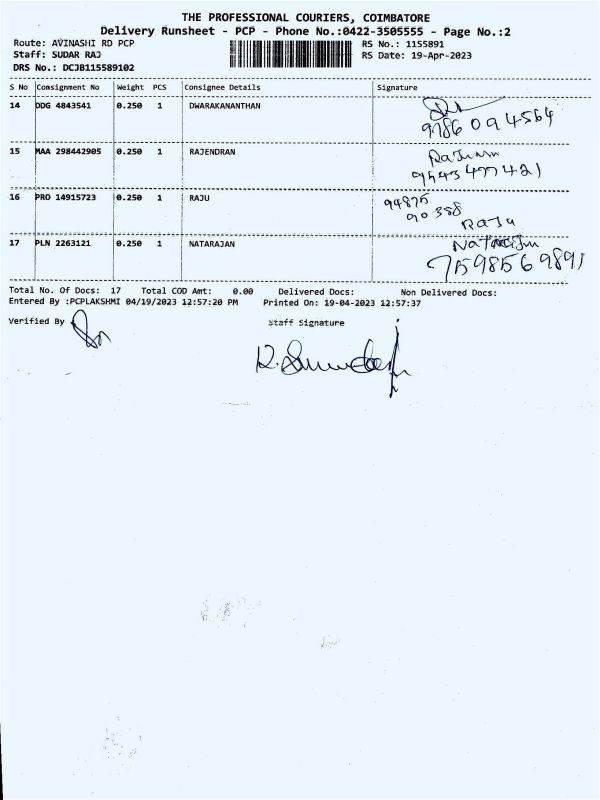 THE PROFESSIONAL COURIERS, COIMBATORE
Delivery Runsheet - PCP - Phone No.:0422-3505555 - Page No.:2
Route: AVINASHI RD PCP RS No.: 1155891
Staff: SUDAR RAJ RS Date: 19-Apr-2023
DRS No.: DCJB115589102
S No Consignment No Weight PCS Consignee Details Signature
14 DDG 4843541 0.250 1 DWARAKANANTHAN
9786094564
15 MAA 298442905 0.250 1 RAJENDRAN
16 PRO 14915723 0.250 1 RAJU 94875
90388
RaJu
17 PLN 2263121 0.250 1 NATARAJAN
7598569891
Total No. Of Docs: 17 Total COD Amt: 0.00 Delivered Docs: Non Delivered Docs:
Entered By :PCPLAKSHMI 04/19/2023 12:57:20 PM Printed On: 19-04-2023 12:57:37
Verified By Staff Signature